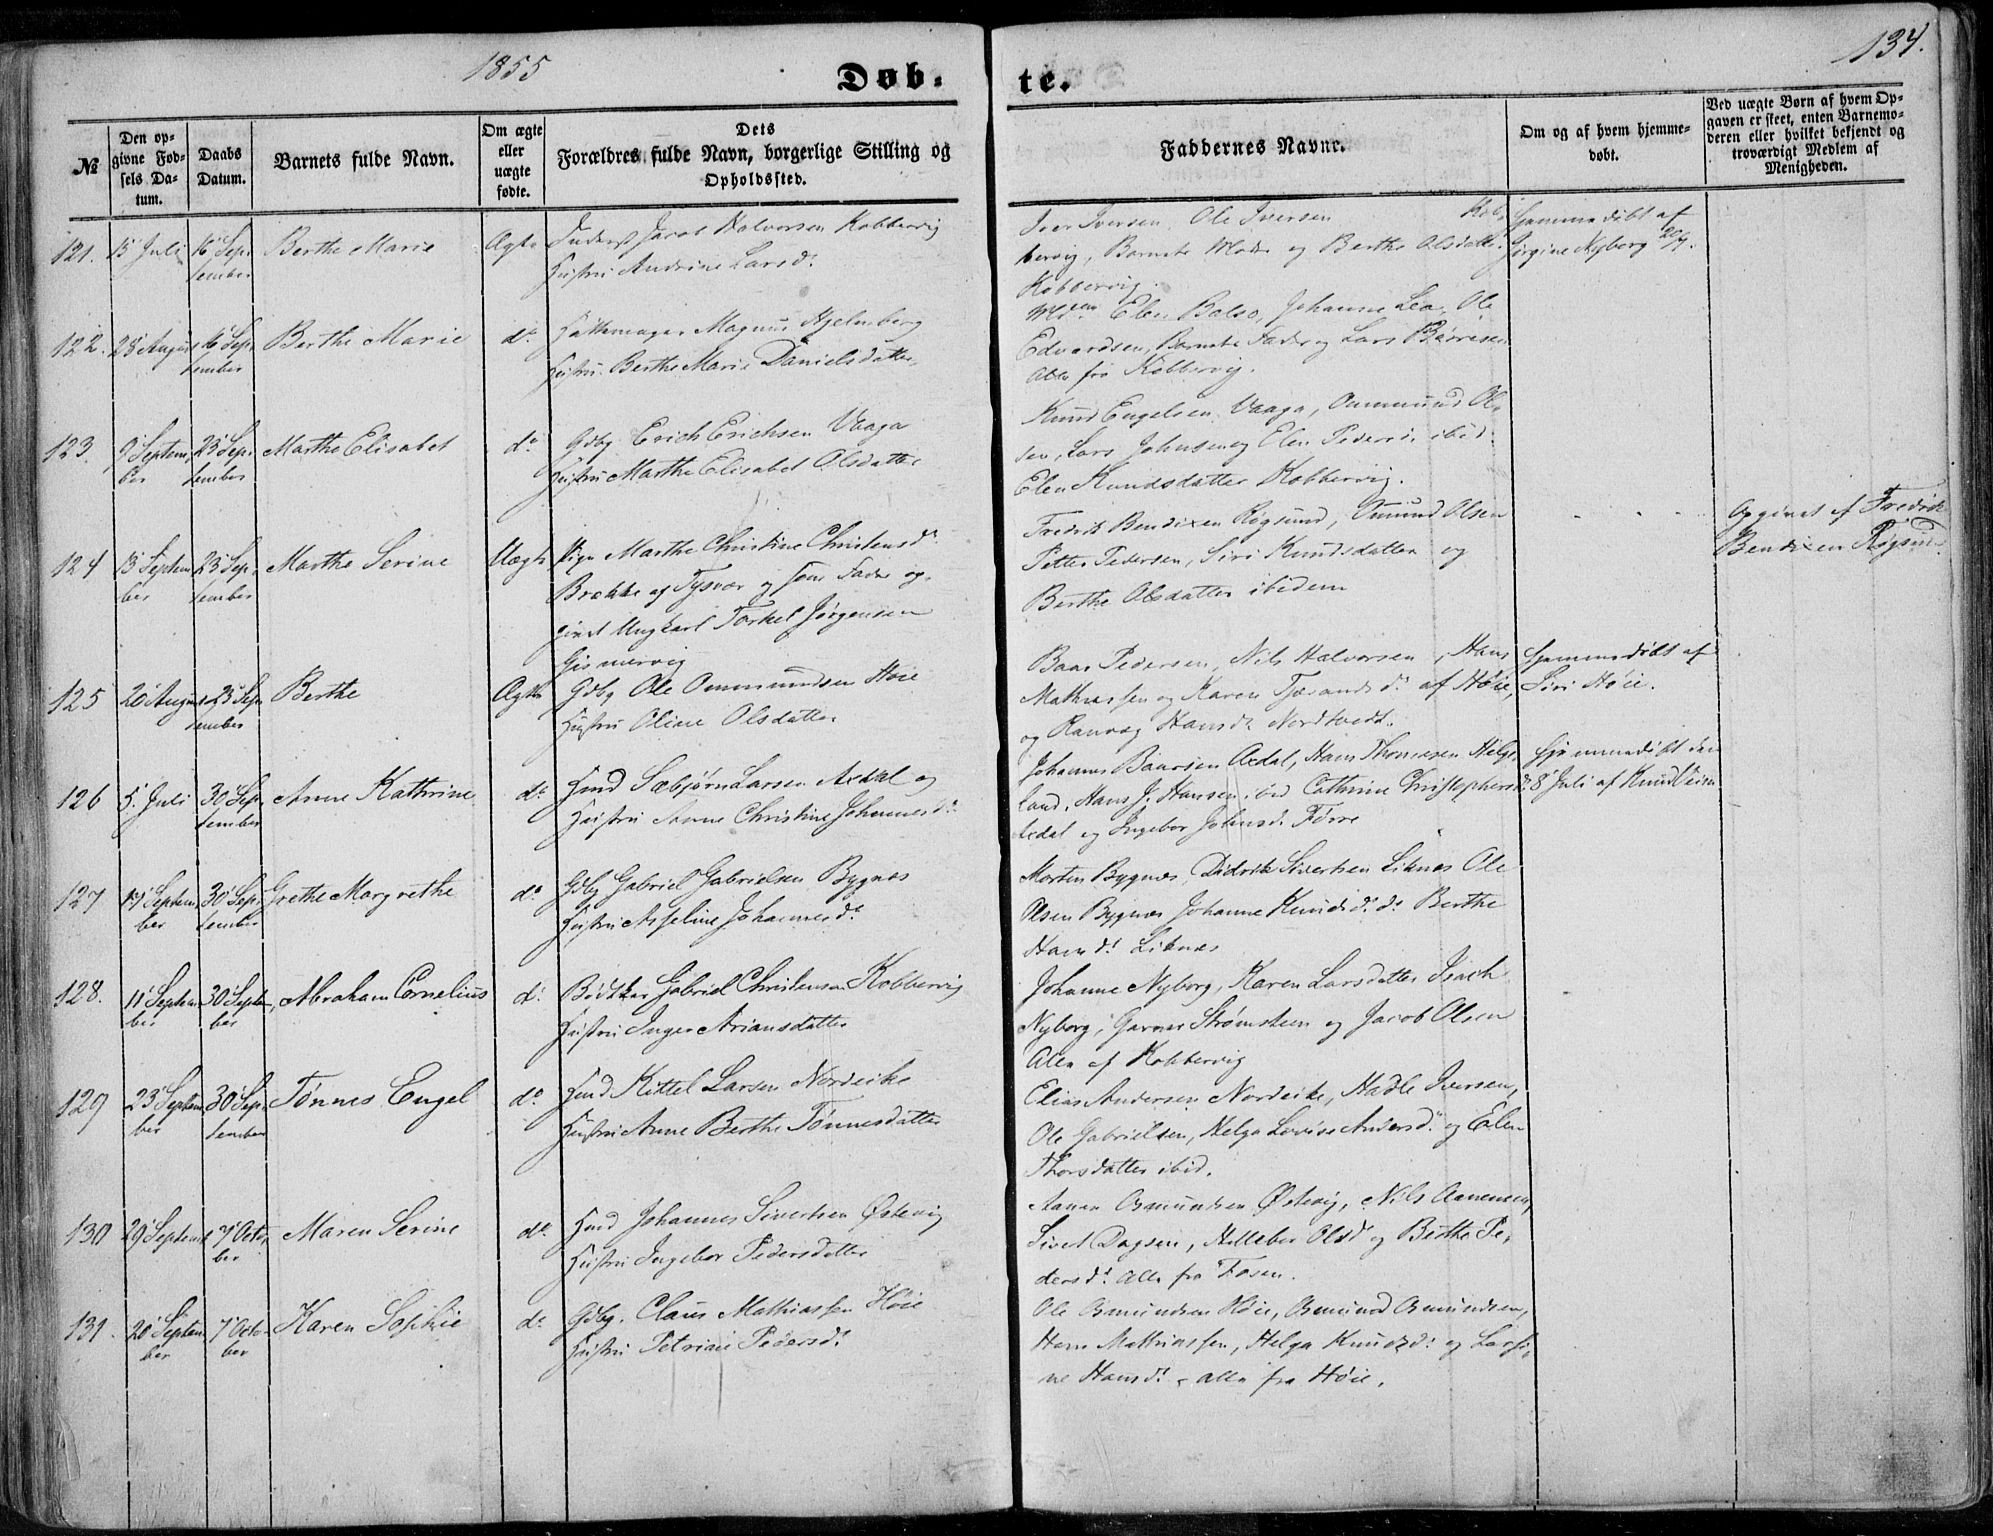 1855
134.
Døb-
te.
№
Den op-
givne Fød-
sels Da-
tum.
Daabs
Datum.
Barnets fulde Navn.
Om ægte
eller
uægte
fødte.
Dets
Forældres fulde Navn, borgerlige Stilling og
Opholdssted.
Faddernes Navne.
Om og af hvem hjemme-
døbt.
Ved uægte Børn af hvem Op-
gaven er skeet, enten Barnemo-
deren eller hvilket bekjendt og
troværdigt Medlem af
Menigheden.
121. 15 Juli 16 Sep-
tember
Berthe Marie
Ægte
Jacob Halvorsen Kobbervig
Hustru Andrine Larsd.
Iver Iversen, Ole Iversen Kob-
bervig, Barnets Moder og Berthe Olsdatter
Kobbervig.
Hjemmedøbt af
Jørgine Nyborg
122. 28 August 16 Sep-
tember
Berthe Marie
do
Magnus Hjelmberg
Hustru Berthe Marie Danielsdatter
Elen Balso, Johanne Lea, Ole
Edvardsen, Barnets Fader og Lars Børresen
Alle fra Kobbervig.
123. 9 Septem-
ber
23 Sep-
tember
Marthe Elisabet
do
Gdbg. Erich Erichsen Vaaga
Hustru Marthe Elisabet Olsdatter
Knud Engelsen Vaaga, Ommund Ol-
sen, Lars Johnsen og Elen Pedersd. ibid.
Elen Knudsdatter Kobbervig.
124 13 Septem-
ber
23 Sep-
tember
Marthe Serine
Uægte
Pige Marthe Christine Christensd.
Brække af Tysvær og som Fader op-
givet Ungkarl Torkel Jørgensen
Gismervig
Fredrik Bendixen Røgsund, Omund Olsen
Petter Pedersen, Siri Knudsdatter og
Berthe Olsdatter ibidem
Opgivet af Fredrik
Bendixen Røgsund.
125 20 August 23 Sep-
tember
Berthe
Ægte
Gdbg Ole Ommundsen Høie
Hustru Oline Olsdatter
Baar Pedersen, Nils Halvorsen, Hans
Mathiassen og Karen Tjerandsd. af Høie,
og Ranvæg Hansd. Nordtvedt.
Hjemmedøbt af
Siri Høie.
126 5. Juli 30 Sep-
tember
Anne Kathrine
do
Hmd Sæbjørn Larsen Axdal og
Hustru Anne Christine Johannesd.
Johannes Baarsen Axdal, Hans Thomasen Helge-
land, Hans J. Hansen, Cathrine Christophersd.
Axdal og Ingebor Johnsd. Førre
Hjemmedøbt den
8 Juli af Knud
127 17 Septem-
ber
30 Sep-
tember
Grethe Margrethe
do
Gdbg Gabriel Gabrielsen Bygnes
Hustru Asseline Johannesd.
Morten Bygnes, Didrik Sivertsen Liknes Ole
Olsen Bygnes Johanne Knudsd. do Berthe
Hansd. Liknes
128. 11 Septem-
ber
30 Septem-
ber
Abraham Cornelius
do
Bødtker Gabriel Christensen Kobbervig
Hustru Inger Ariansdatter
Johanne Nyborg, Karen Larsdatter, Isach
Nyborg, Strømsteen og Jacob Olsen
Alle af Kobbervig
129 23 Septem-
ber
30 Sep-
tember
Tønnes Engel
do
Hmd Kittel Larsen Nordeike
Hustru Anne Berthe Tønnesdatter
Elias Andersen Nordeike, Hadle Iversen,
Ole Gabrielsen, Helga Lovise Andersd. og Elen
Thorsdatter ibid.
130 29 Septemb 7 Octo-
ber
Maren Serine
do
Hmd Johannes Sivertsen Østevig
Hustru Ingebor Pedersdatter
Aanen Osmundsen Østevig, Nils Aanensen,
Sivert Dagsen, Helleber Olsd og Berthe Pe-
dersd. Alle fra Fosen.
131. 20 Septem-
ber
7 Octo-
ber
Karen Sophie
do
Gdbg. Claus Mathiassen Høie
Hustru Petriane Pedersd.
Ole Osmundsen Høie, Osmund Osmundsen,
Hans Mathiassen, Helga Knudsd. og Larsi-
ne Hansd. alle fra Høie.